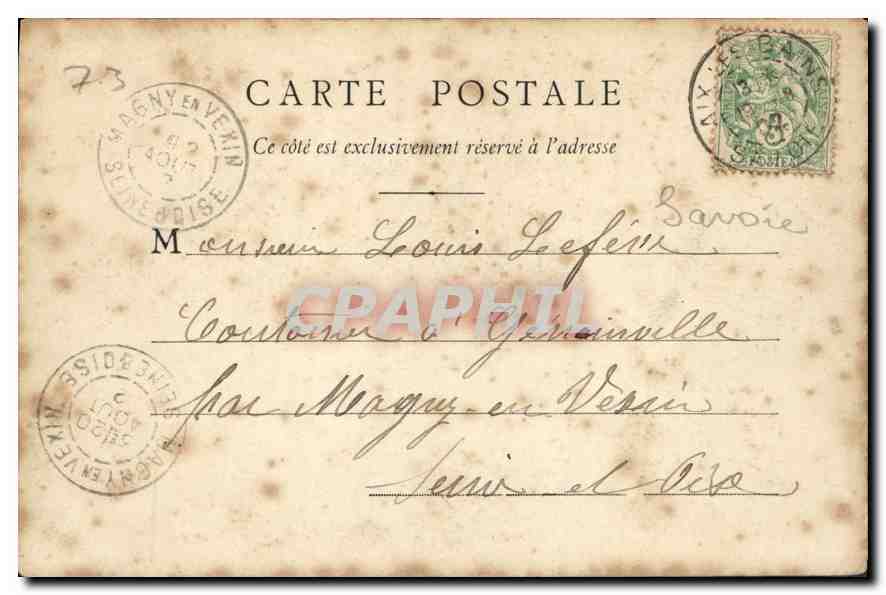 73
CARTE POSTALE
Ce côté est exclusivement réservé à l'adresse
MAGNY EN VEXIN
AOUT
SEINE & OISE
AIX-LES-BAINS
POSTES
Savoie
Monsieur Louis Lefévre
à Génainville
par Magny-en Vexin
Seine et Oise
CPAPHIL
SEINE & OISE
20
AOUT
MAGNY EN VEXIN